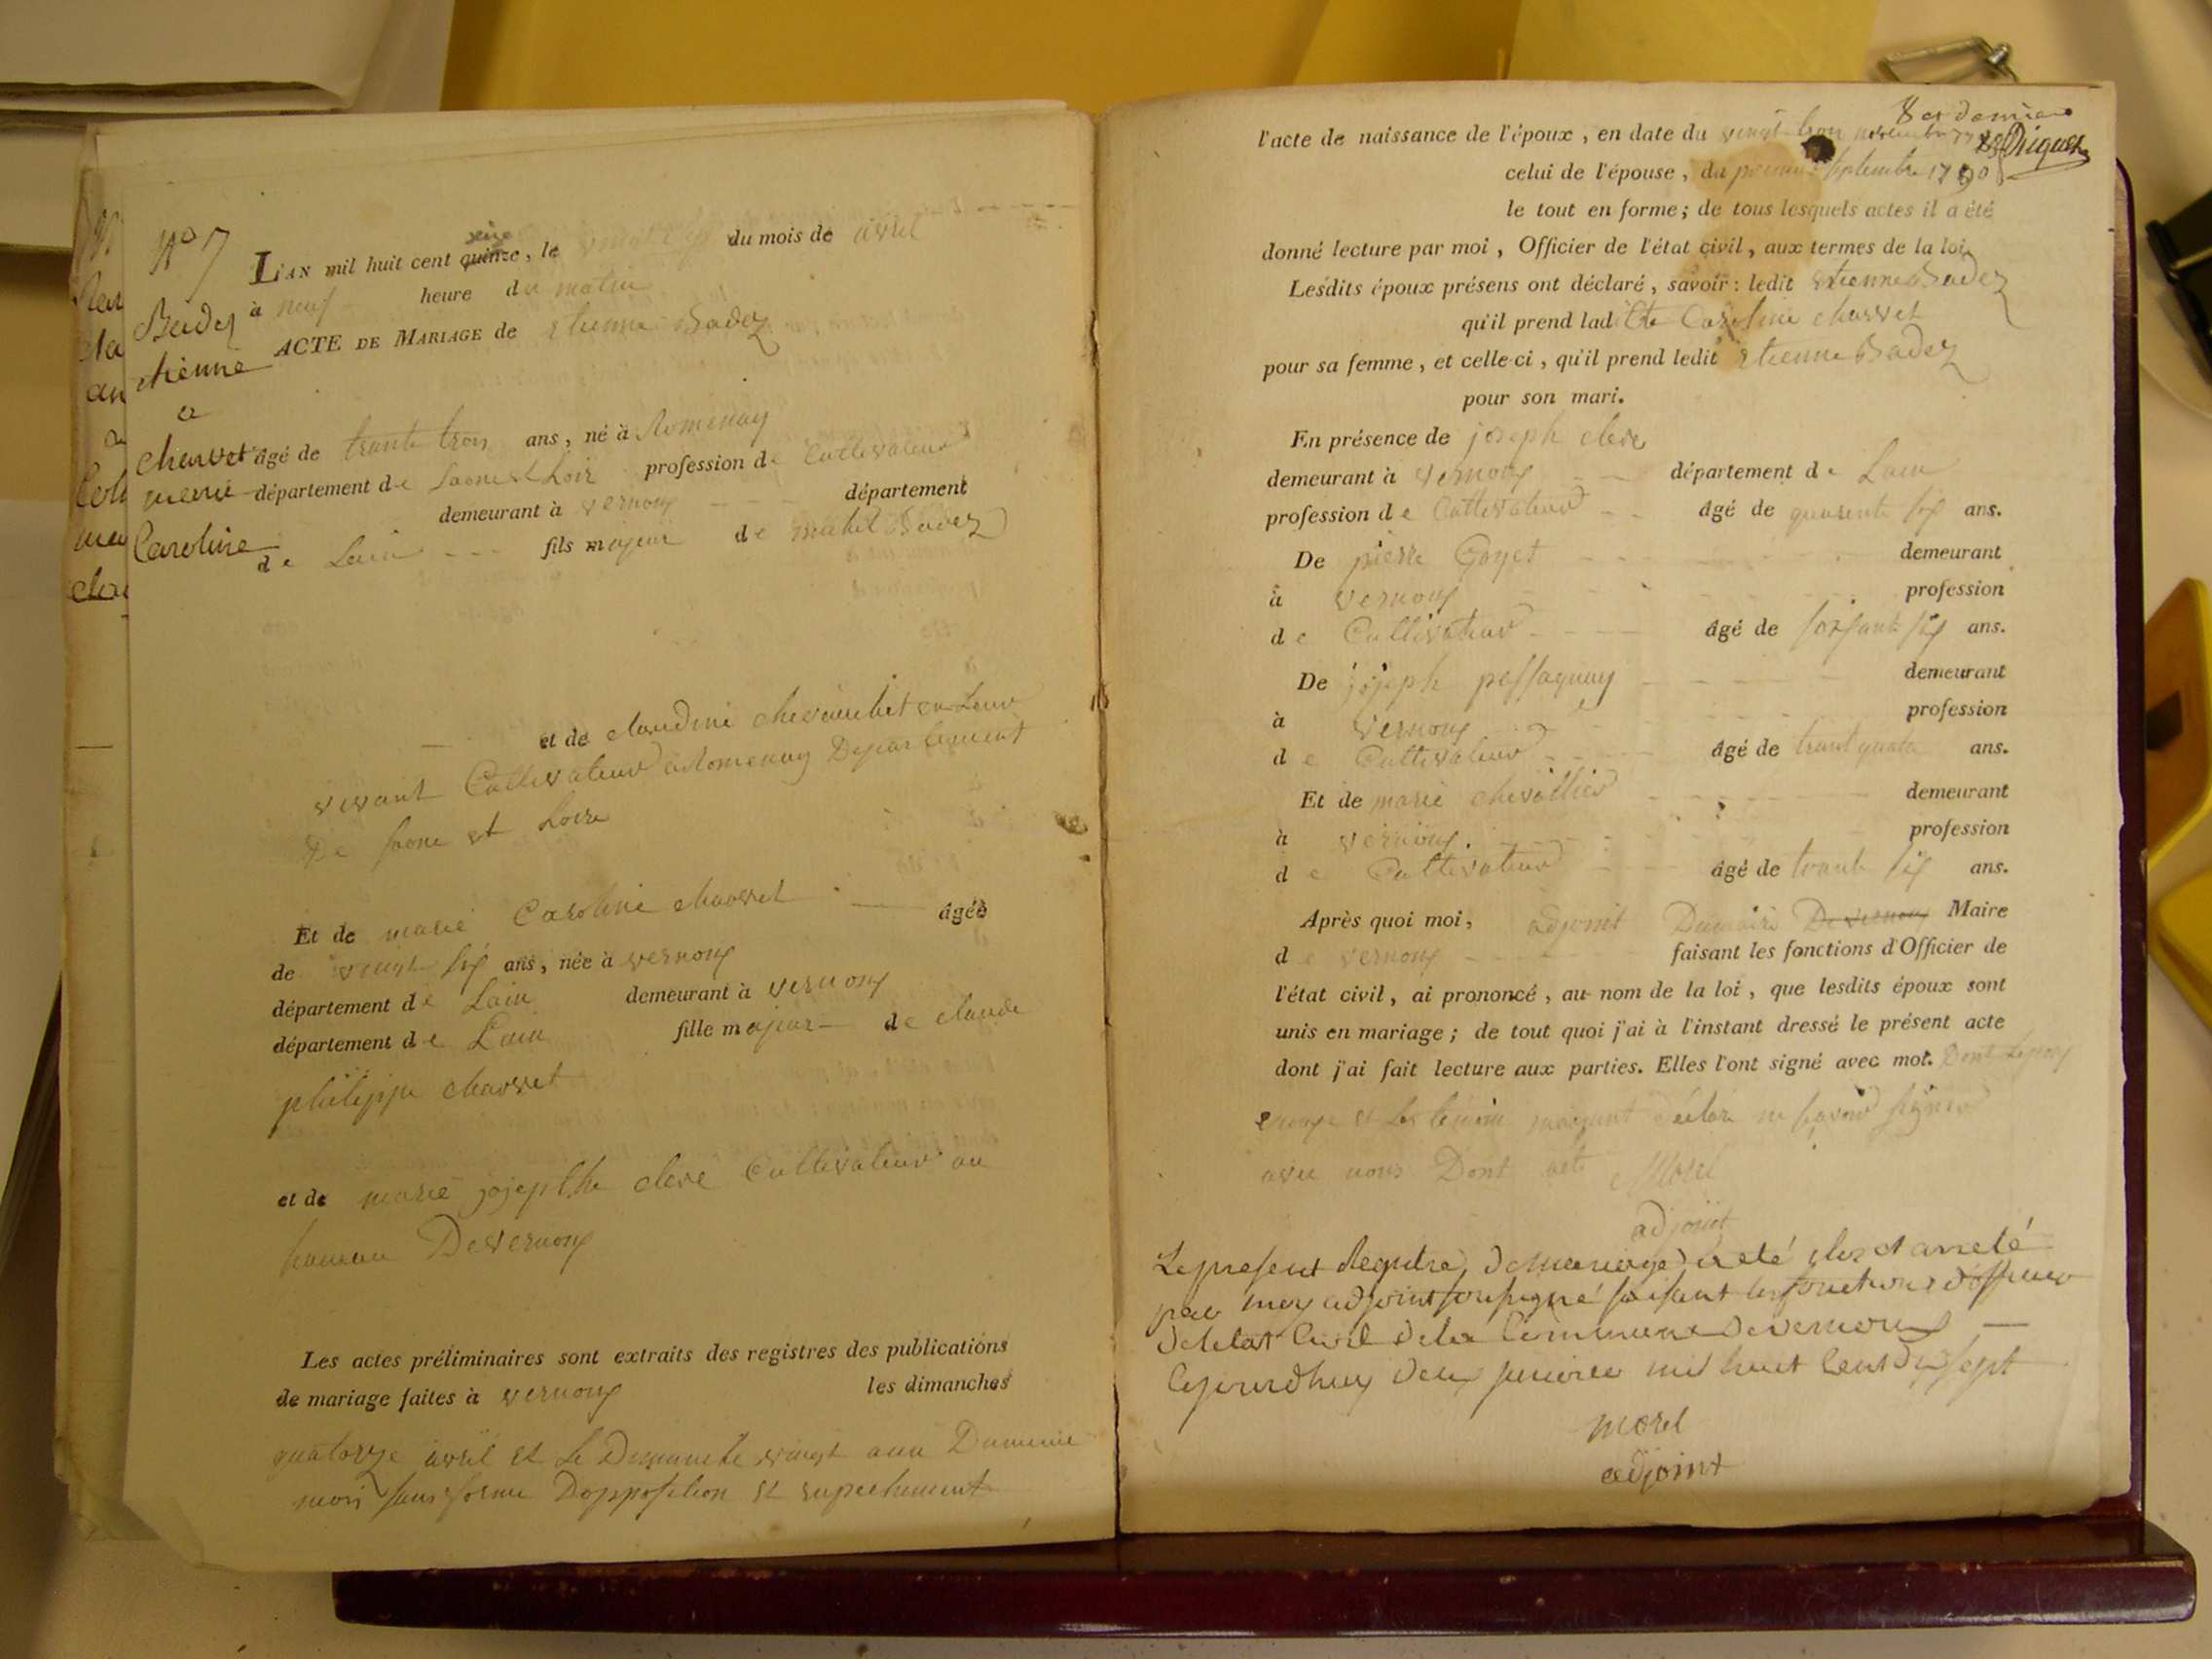 N° 7
Badez
etienne
a
Charvet
marie
Caroline
L'AN mil huit cent quinze seize, le vingt du mois de avril
à neuf heure du matin
ACTE DE MARIAGE de etienne Badez
âgé de trante trois ans, né à Romenay
département de Saone et Loir profession de Cultivateur
demeurant à vernoux département
de Lain fils majeur de Badez
et de claudine en Leur
vivant Cultivateur a Romenay Departement
De saone et Loire
Et de marie Caroline charvet âgée
de vingt six ans, née à vernoux
département de Lain demeurant à vernoux
département de Lain fille majeur de claude
philippe charvet
et de marie josephte clere Cultivateur au
hameau De vernoux
Les actes préliminaires sont extraits des registres des publications
de mariage faites à vernoux les dimanches
quatorze avril et le Dimanche vingt aun Dumeme
mois sans forme Dopposition et enpechement
8 et derniere
l'acte de naissance de l'époux, en date du vingt trois novembre
celui de l'épouse, du premier septembre 1790
le tout en forme; de tous lesquels actes il a été
donné lecture par moi, Officier de l'état civil, aux termes de la loi.
Lesdits époux présens ont déclaré, savoir: ledit etienne Badez
qu'il prend ladite Caroline charvet
pour sa femme, et celle-ci, qu'il prend ledit etienne Badez
pour son mari.
En présence de joseph clere
demeurant à vernoux département de Lain
profession de Cultivateur âgé de quarente six ans.
De pierre Goyet demeurant
à vernoux profession
de Cultivateur âgé de soixante six ans.
De joseph demeurant
à vernoux profession
de Cultivateur âgé de trant quatre ans.
Et de marie chevallier demeurant
à vernoux profession
de Cultivateur âgé de trante six ans.
Après quoi moi, adjoint Dumaire De vernoux Maire
de vernoux faisant les fonctions d'Officier de
l'état civil, ai prononcé, au nom de la loi, que lesdits époux sont
unis en mariage; de tout quoi j'ai à l'instant dressé le présent acte
dont j'ai fait lecture aux parties. Elles l'ont signé avec moi. Dont Lepoux
epouse et les témoin declare ne savoir signer
avec nous Dont acte Morel
adjoint
Le present Registre de mariage a eté clos et arreté
par moy adjoint soussigné faisant les fonctions d'officier
de letat Civil de la Commune de vernoux
Cejourdhuy deux janvier mil huit Cent dix sept
morel
adjoint